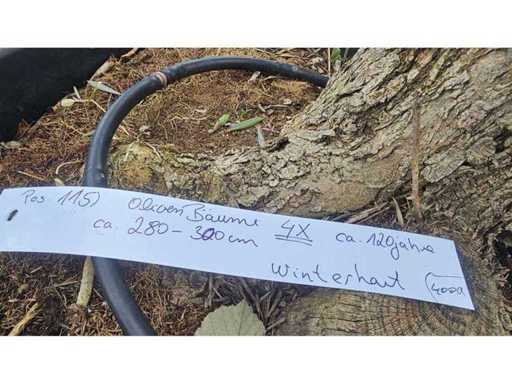 Pos. 115) Oliven Bäume 4x ca. 120 jahre
ca. 280-300cm
Winterhart